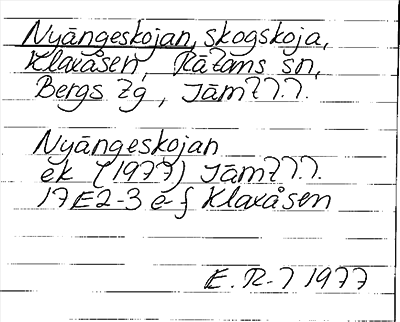 Nyängeskojan, skogskoja,
Klaxåsen, Rätans sn,
Bergs tg, Jämtl.
Nyängeskojan
ek (1977) Jämtl.
17E2-3 e-f Klaxåsen
E.R-l 1977